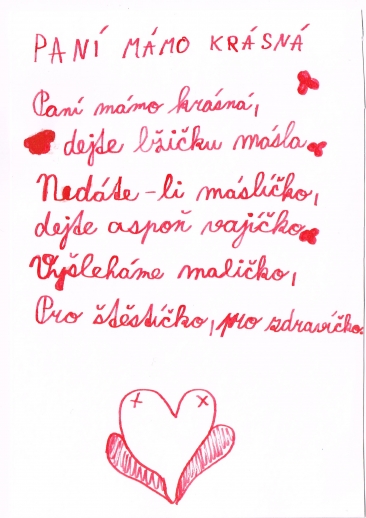 PANÍ MÁMO KRÁSNÁ
Paní mámo krásná,
dejte lžičku másla.
Nedáte-li máslíčko,
dejte aspoň vajíčko.
Vyšleháme maličko,
Pro štěstíčko, pro zdravíčko.